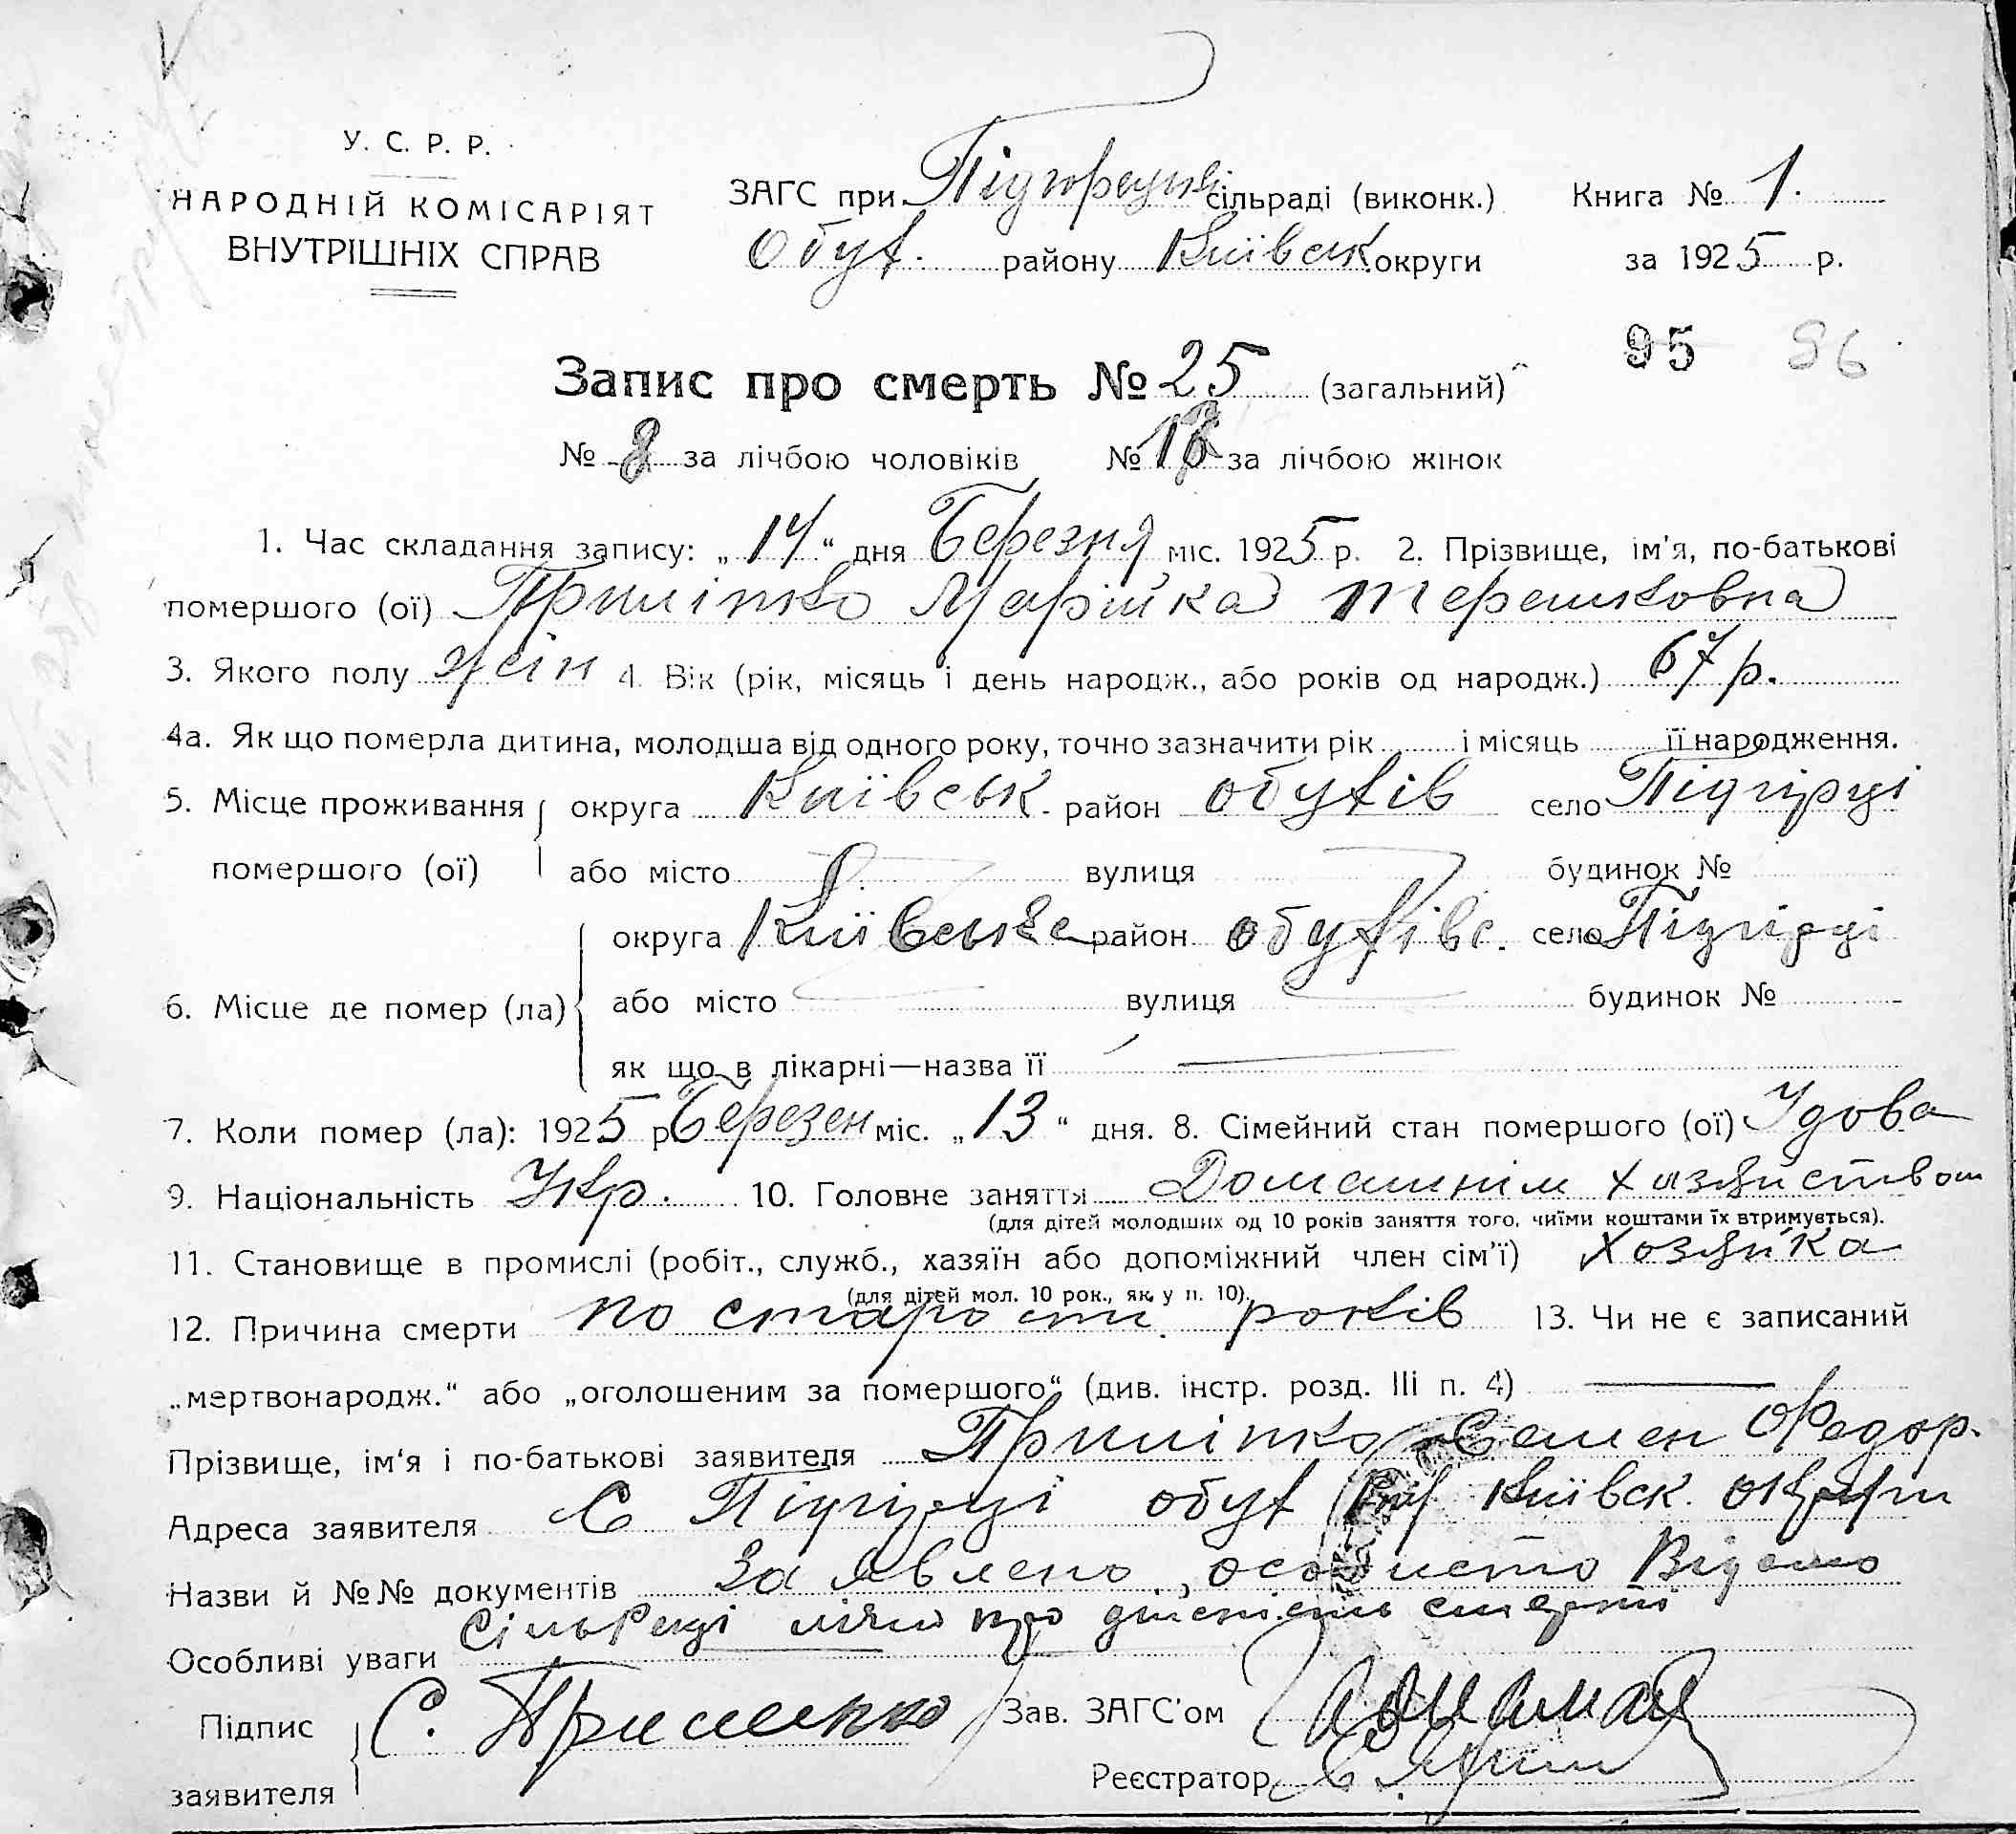 У. С. Р. Р.
НАРОДНІЙ КОМІСАРІЯТ
ВНУТРІШНІХ СПРАВ
ЗАГС при Підгорецкі сільраді (виконк.) Книга № 1.
Обух. району Київськ. округи за 1925 р.
95 86
Запис про смерть № 25 (загальний)
№ 8 за лічбою чоловіків № за лічбою жінок
1. Час складання запису: „14“ дня Березня міс. 1925 р. 2. Прізвище, ім'я, по-батькові
помершого (ої) Приліпко Марійка Терешковна
3. Якого полу жін 4. Вік (рік, місяць і день народж., або років од народж.) 67 р.
4а. Як що померла дитина, молодша від одного року, точно зазначити рік і місяць її народження.
5. Місце проживання округа Київськ. район обухів село Підгірці
помершого (ої) або місто вулиця будинок №
округа Київське район обухівс. село Підгірці
6. Місце де помер (ла) або місто вулиця будинок №
як що в лікарні—назва її
7. Коли помер (ла): 1925 р Березен міс. „13“ дня. 8. Сімейний стан помершого (ої) Удова
9. Національність Укр. 10. Головне заняття Домашнім хазяйством
(для дітей молодших од 10 років заняття того, чиїми коштами їх втримується).
11. Становище в промислі (робіт., служб., хазяїн або допоміжний член сім'ї) Хозяйка
(для дітей мол. 10 рок., як у п. 10).
12. Причина смерти по старости років 13. Чи не є записаний
„мертвонародж.“ або „оголошеним за помершого“ (див. інстр. розд. III п. 4)
Прізвище, ім'я і по-батькові заявителя Приліпко Семен Федор.
Адреса заявителя С Підгірці обух Київск. округи
Назви й №№ документів Заявлено, особисто Відомо
Сільраді про дійсність смерти
Особливі уваги
Підпис С. Прилепко Зав. ЗАГС'ом
заявителя Реєстратор